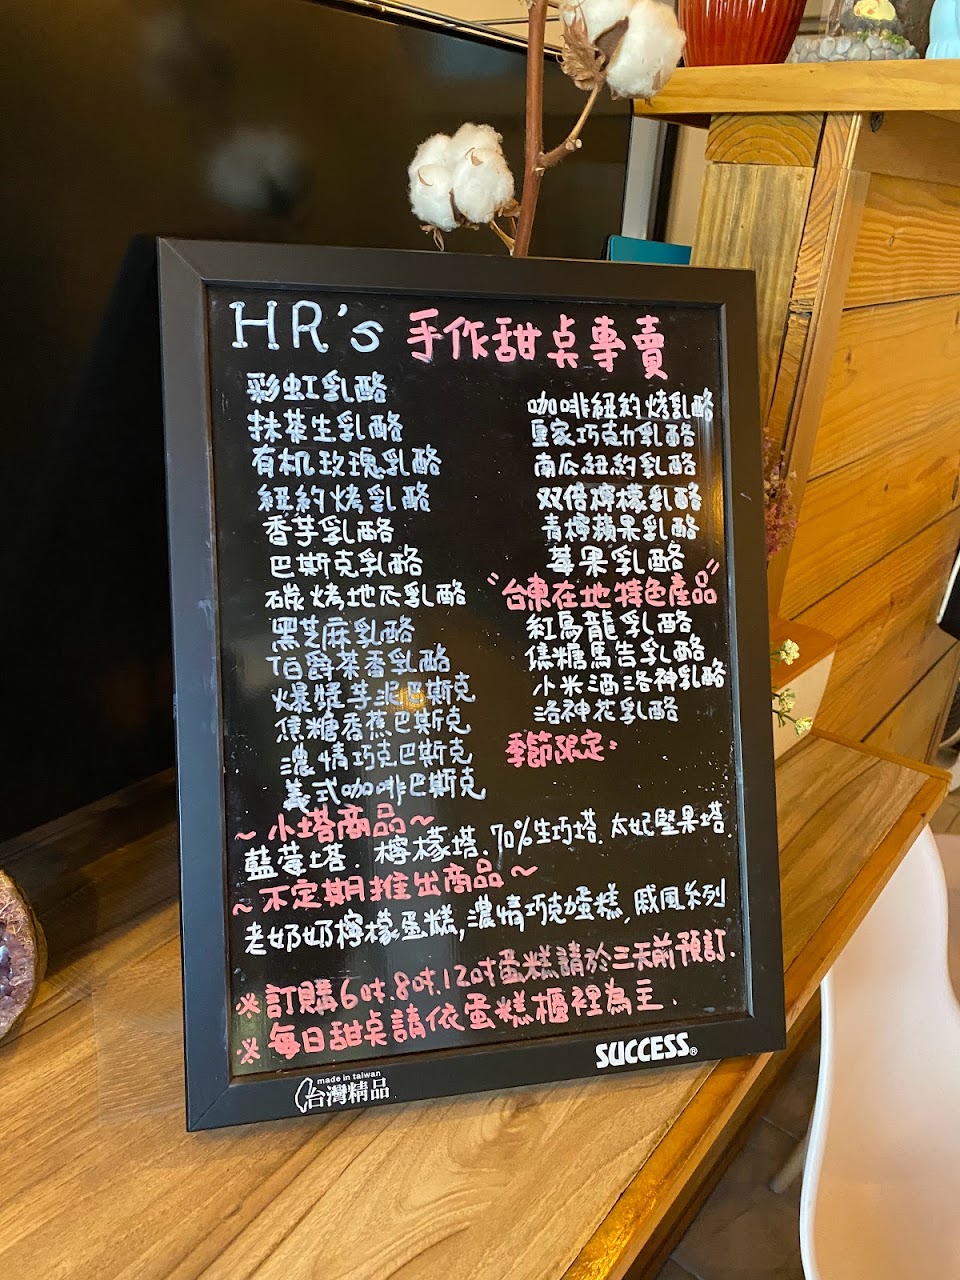 HR's 手作甜桌專賣
彩虹乳酪
抹茶生乳酪
有机玫瑰乳酪
紐約烤乳酪
香芋乳酪
巴斯克乳酪
碳烤地瓜乳酪
黑芝麻乳酪
伯爵茶香乳酪
爆漿芋泥巴斯克
焦糖香蕉巴斯克
濃情巧克巴斯克
義式咖啡巴斯克
咖啡紐約烤乳酪
重家巧克力乳酪
南瓜紐約乳酪
双倍檸檬乳酪
青檸蘋果乳酪
莓果乳酪
"台東在地特色產品"
紅烏龍乳酪
焦糖馬告乳酪
小米酒洛神乳酪
洛神花乳酪
季節限定:
~小塔商品~
藍莓塔. 檸檬塔. 70%生巧塔. 太妃堅果塔.
~不定期推出商品~
老奶奶檸檬蛋糕, 濃情巧克蛋糕, 戚風系列
※訂購6吋.8吋.12吋蛋糕請於三天前預訂.
※每日甜桌請依蛋糕櫃裡為主.
SUCCESS®
made in taiwan
台灣精品